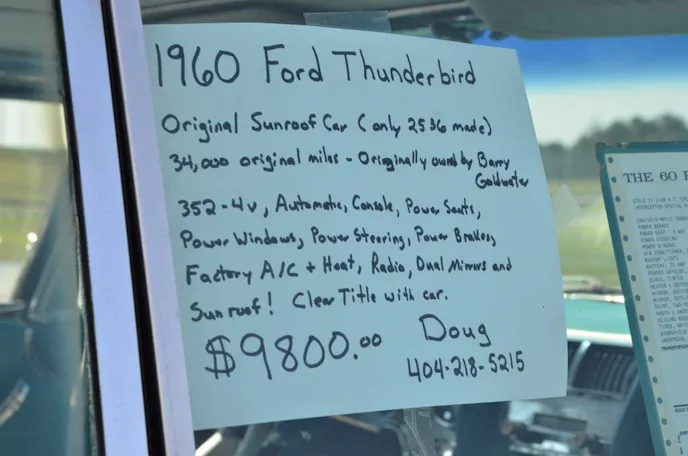 1960 Ford Thunderbird
Original Sunroof Car (only 2536 made)
34,000 original miles - Originally owned by Barry
Goldwater
352-4v, Automatic, Console, Power Seats,
Power Windows, Power Steering, Power Brakes,
Factory A/C + Heat, Radio, Dual Mirrors and
Sunroof! Clear Title with car.
$9800.00
Doug
404-218-5215
THE 60
POWER BRAKES
POWER STEERING
POWER WINDOWS
AIR CONDITIONER,
BACKUP LIGHTS